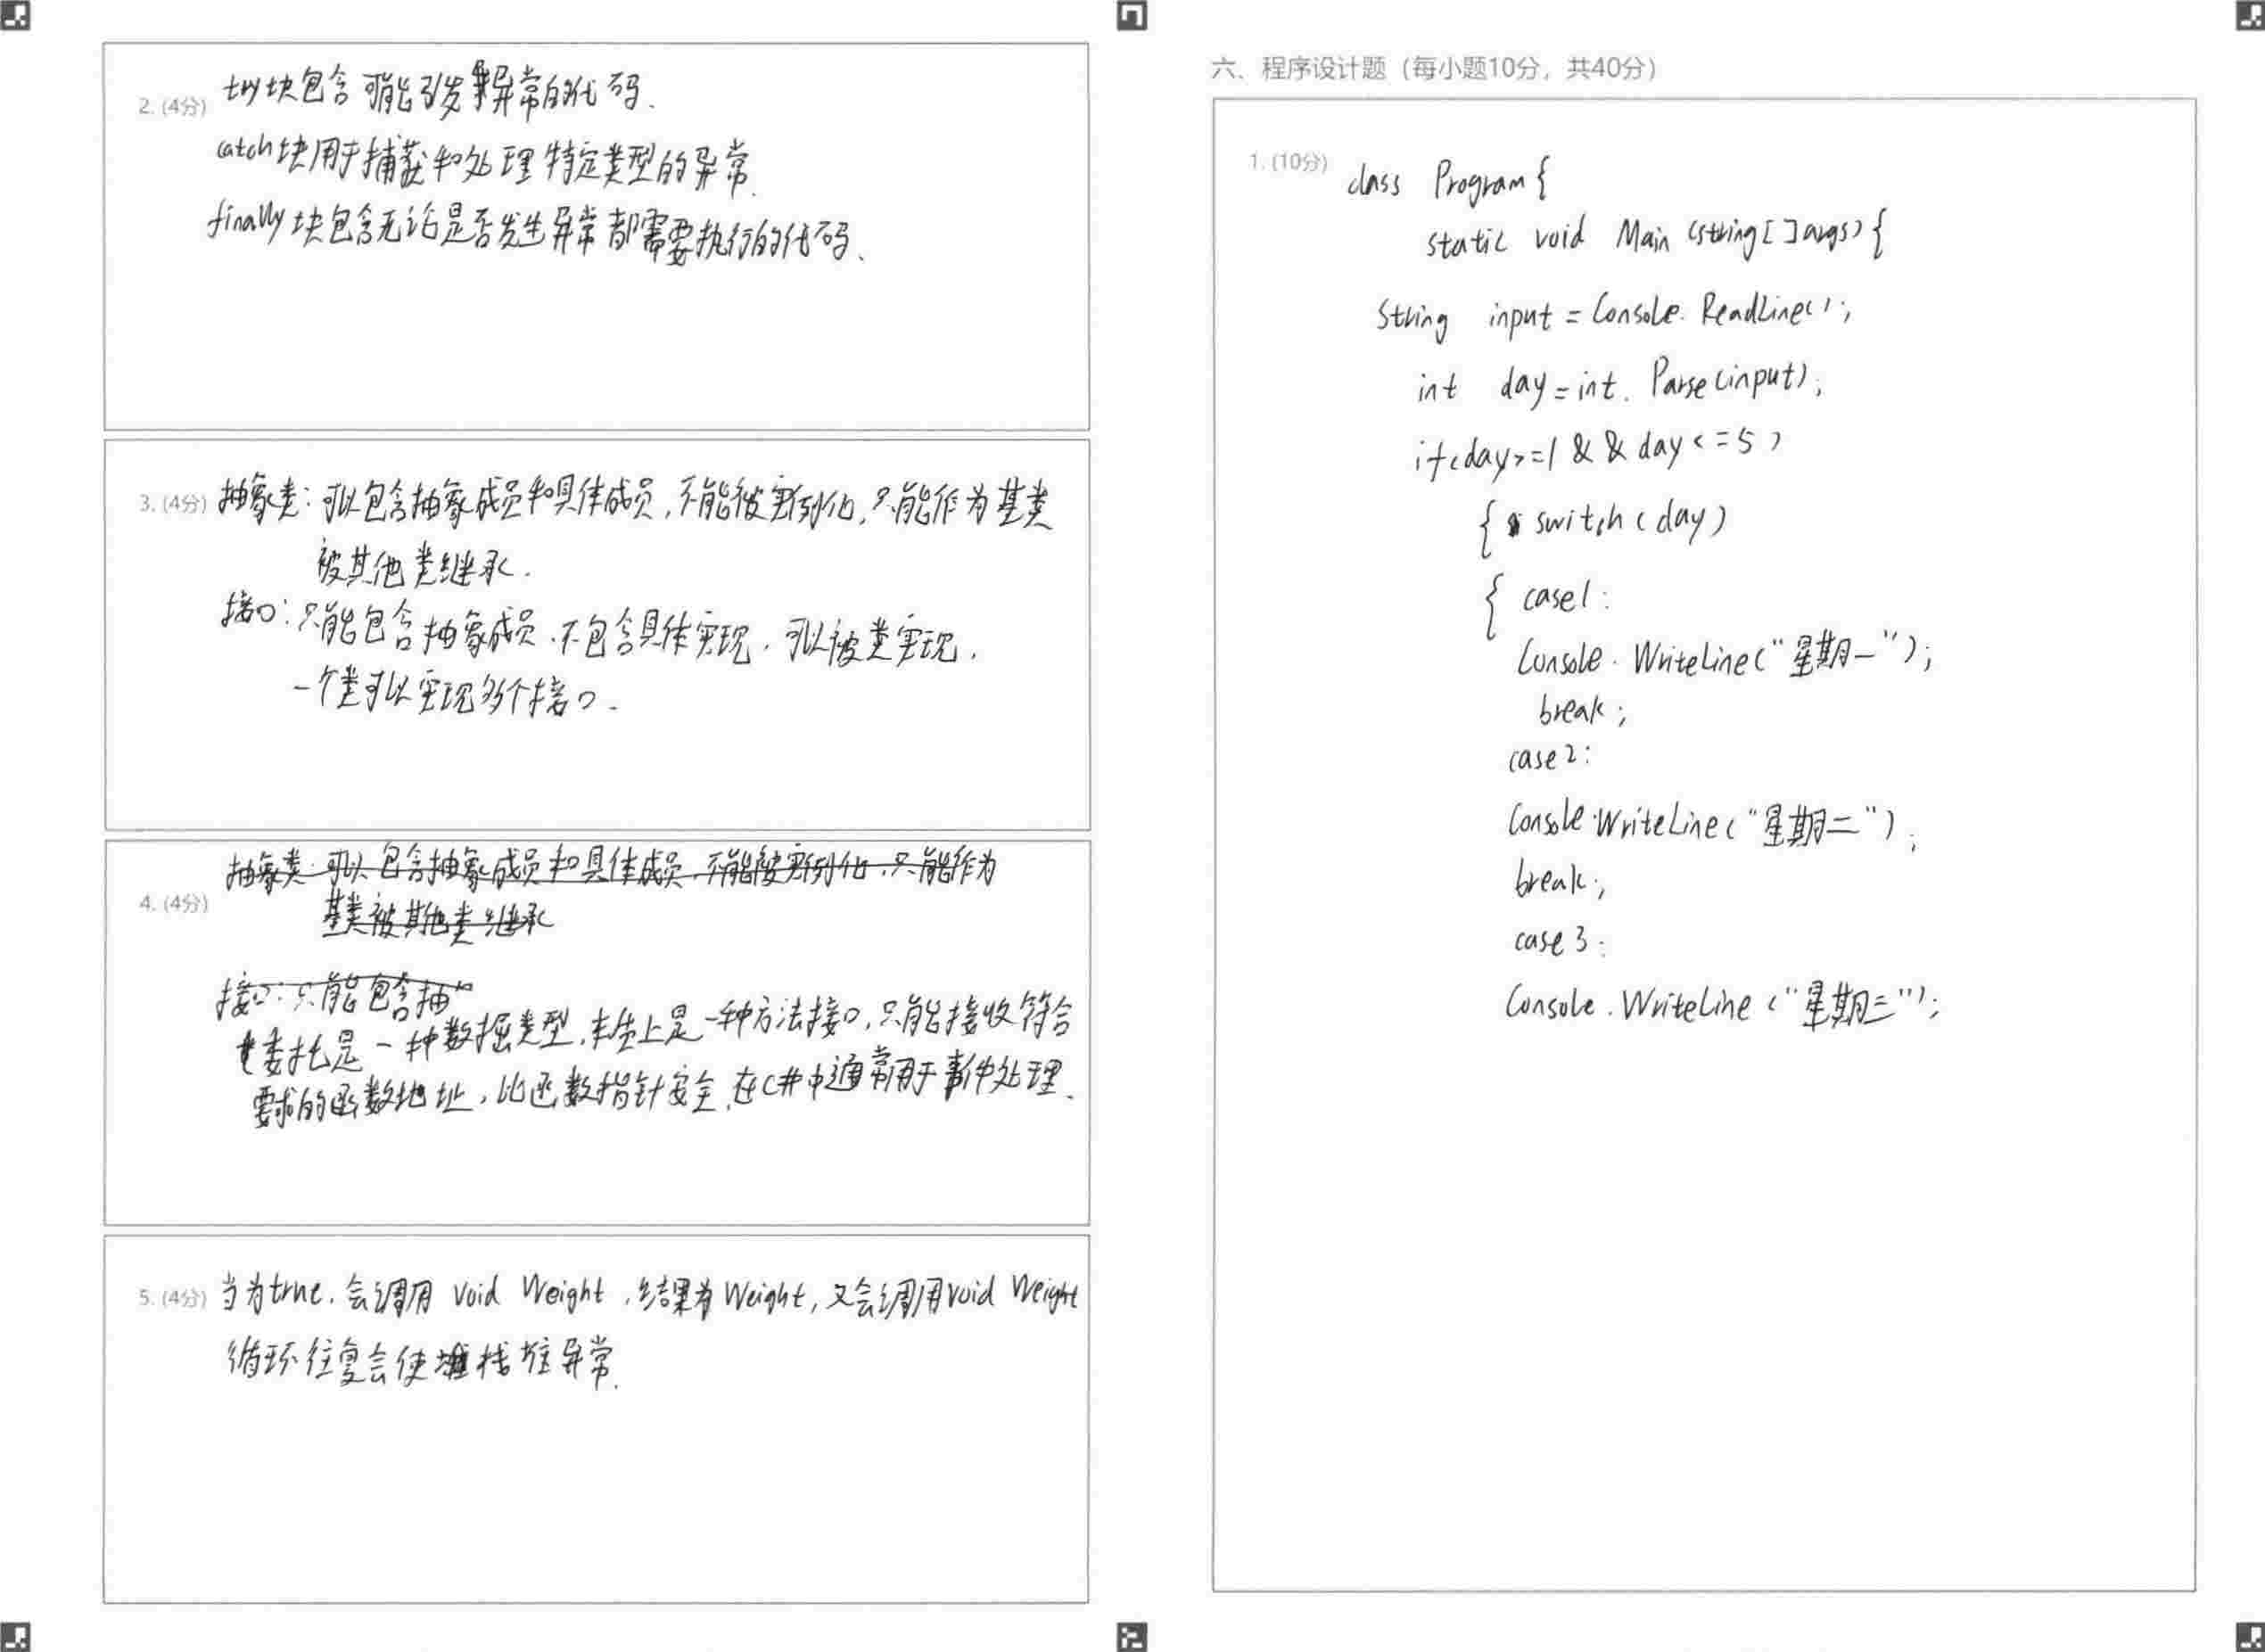 2. (4分) try块包含可能引发异常的代码.
catch块用于捕获和处理特定类型的异常.
finally块包含无论是否发生异常都需要执行的代码.
3. (4分) 抽象类: 可以包含抽象成员和具体成员, 不能被实例化, 只能作为基类
被其他类继承.
接口: 只能包含抽象成员.不包含具体实现. 可以被类实现.
一个类可以实现多个接口.
抽象类: 可以包含抽象成员和具体成员, 不能被实例化, 只能作为
4. (4分)
基类被其他类继承
接口: 只能包含抽
委托是一种数据类型, 本质上是一种方法接口, 只能接收符合
要求的函数地址, 比函数指针安全, 在C#中通常用于事件处理.
5. (4分) 当为true, 会调用 void Weight, 结果为Weight, 又会调用void Weight
循环往复会使堆栈异常.
六、程序设计题（每小题10分，共40分）
1. (10分) class Program{
static void Main (string[]args){
String input = Console.ReadLine();
int day=int.Parse(input);
if(day>=1 && day<=5)
{ switch(day)
{ case1:
Console.WriteLine("星期一");
break;
case2:
Console.WriteLine("星期二");
break;
case3:
Console.WriteLine("星期三");